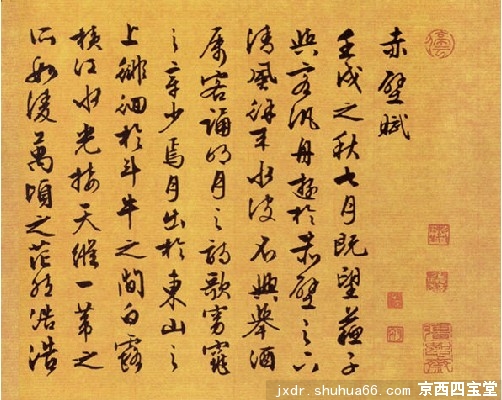 赤壁賦
壬戌之秋七月既望蘇子
與客汎舟遊於赤壁之下
清風徐来水波不興舉酒
属客誦明月之詩歌窈窕
之章少焉月出於東山之
上徘徊於斗牛之間白露
橫江水光接天縱一葦之
所如凌萬頃之茫然浩浩
jxdr.shuhua66.com 京西四宝堂